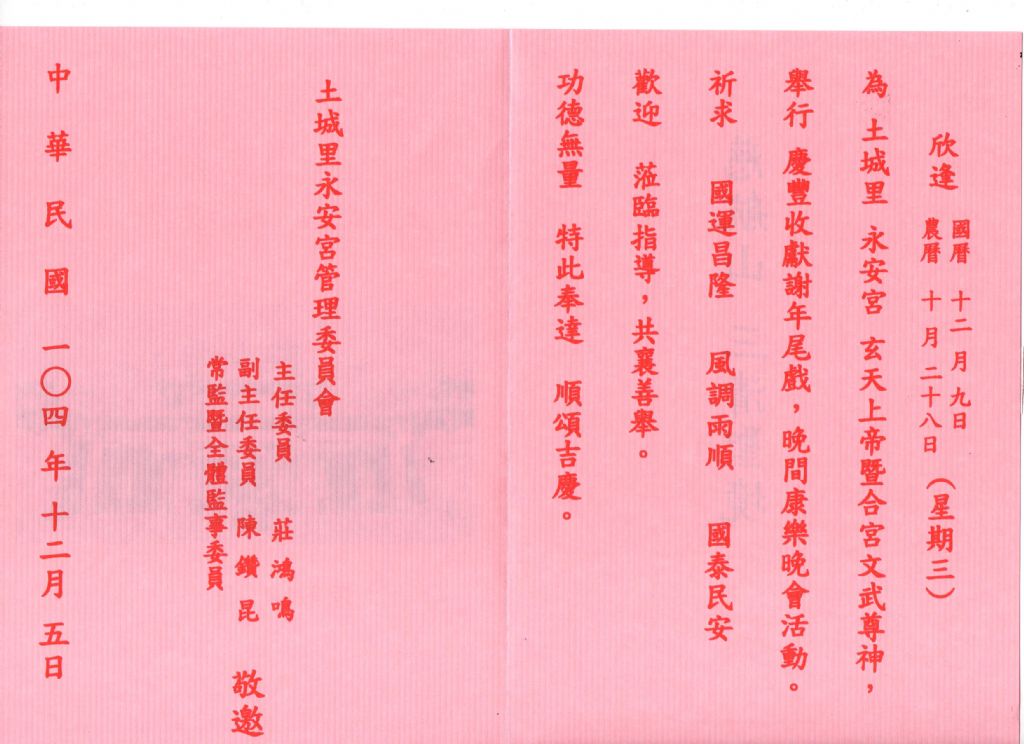 欣逢 國曆 十二月九日
農曆 十月二十八日 （星期三）
為 土城里 永安宮 玄天上帝暨合宮文武尊神，
舉行 慶豐收獻謝年尾戲，晚間康樂晚會活動。
祈求 國運昌隆 風調雨順 國泰民安
歡迎 蒞臨指導，共襄善舉。
功德無量 特此奉達 順頌吉慶。
土城里永安宮管理委員會
主任委員 莊鴻鳴
副主任委員 陳鑽昆 敬邀
常監暨全體監事委員
中華民國一〇四年十二月五日